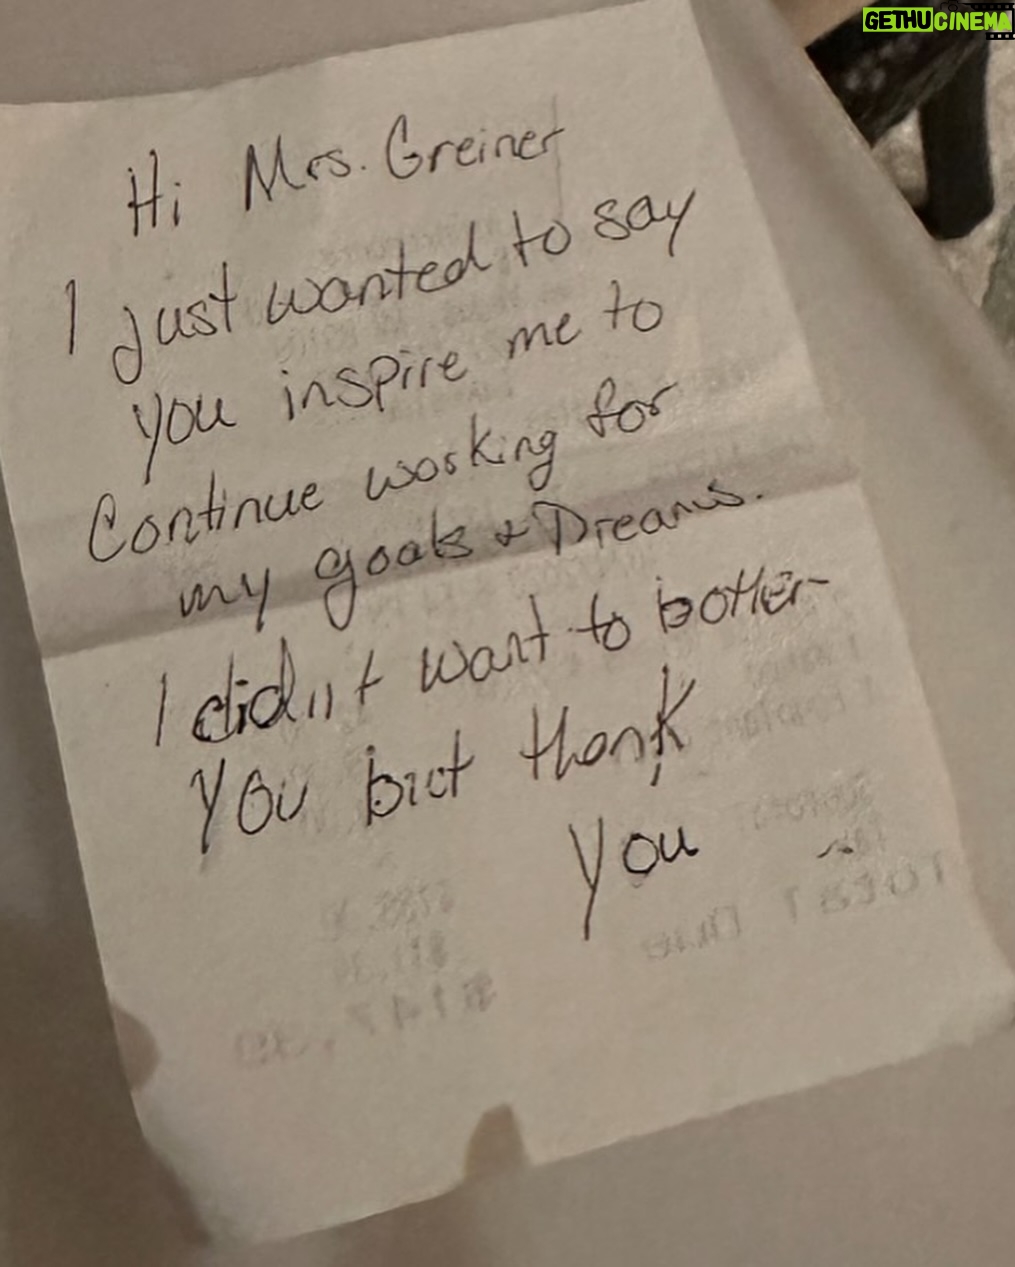 GETHUCINEMA
Hi Mrs. Greiner
I just wanted to say
you inspire me to
Continue working for
my goals & Dreams.
I didn't want to bother
you but thank
you
Total Due
$147.